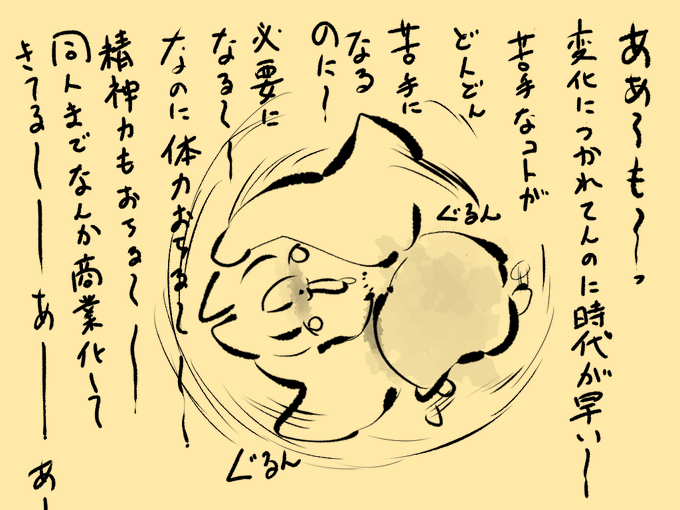 ああ〜も〜っ
変化につかれてんのに時代が早い〜
苦手なコトが
どんどん
苦手に
なる
のに〜
必要に
なる〜〜
なのに体力おちる〜〜!
精神力もおちる〜〜
同人までなんか商業化して
きてる〜ーーあー!あー
ぐるん
ぐるん